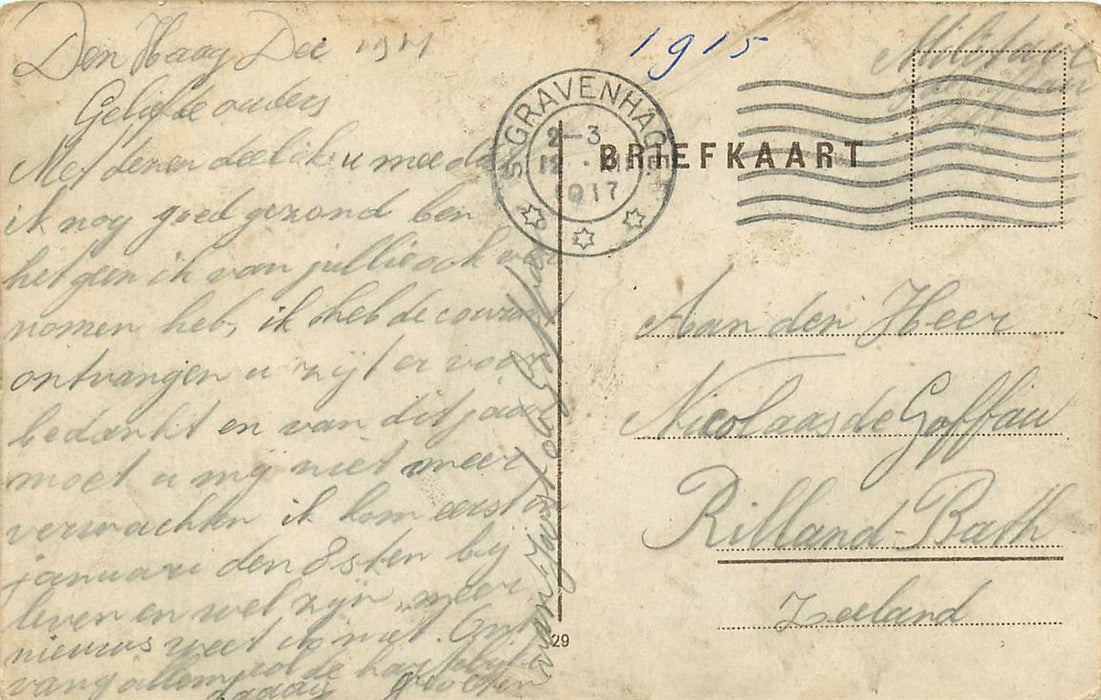 Den Haag Dec 1917
Geliefde ouders
Met denen deel ik u mee da
ik nog goed gezond ben
het geen ik van jullie ook ver
nomen heb, ik heb de courant
ontvangen u zijt er voor
bedankt en van dit jaar
moet u mij niet meer
verwachten ik kom eerst
januari den 8sten bij
leven en wel zijn meer
nieuws weet ik niet. Ont
vang allemaal de hartelijke
Groeten
van Joost de Goffau
1915
Militair
'S GRAVENHAGE
2-3
12
1917
BRIEFKAART
Aan den Heer
Nicolaas de Goffau
Rilland-Bath
Zeeland
29